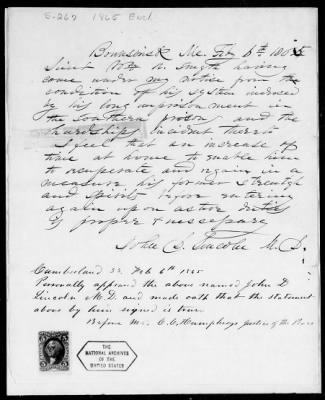 S-267 1865 Encl
Brunswick Me. Feb 6th 1865
Lieut R. Smyth having
come under my notice from the
condition of his system induced
by his long imprisonment in
the Southern prison and the
hardships incident thereto
I feel that an increase of
time at home to enable him
to recuperate and regain in a
measure his former strength
and spirits before entering
again upon active duties
is proper & necessary
John D. Lincoln M.D.
Cumberland SS. Feb 6th 1865
Personally appeared the above named John D
Lincoln M.D. and made oath that the statement
above by him signed is true.
Before me C. C. Humphreys Justice of the Peace
THE
NATIONAL ARCHIVES
OF THE
UNITED STATES